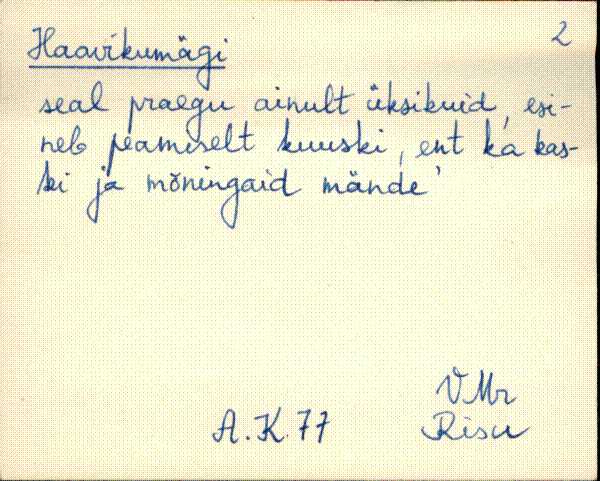 2
Haavikumägi
seal praegu ainult üksikuid, esi-
neb peamiselt kuuski, ent ka kas-
ki ja mõningaid mände'
VMr
A.K.77 Risu